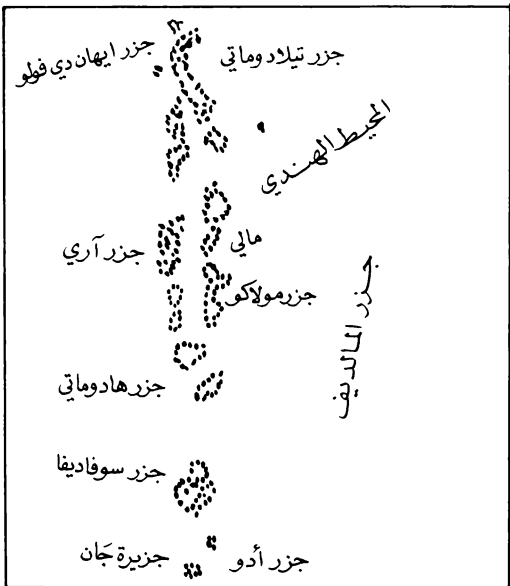 جزر تيلادوماتي
جزر ايهان دي فولو
المحيط الهندي
مالي
جزر آري
جزر مولاكو
جزر المالديف
جزر هادوماتي
جزر سوفاديفا
جزر أدو
جزيرة جَان